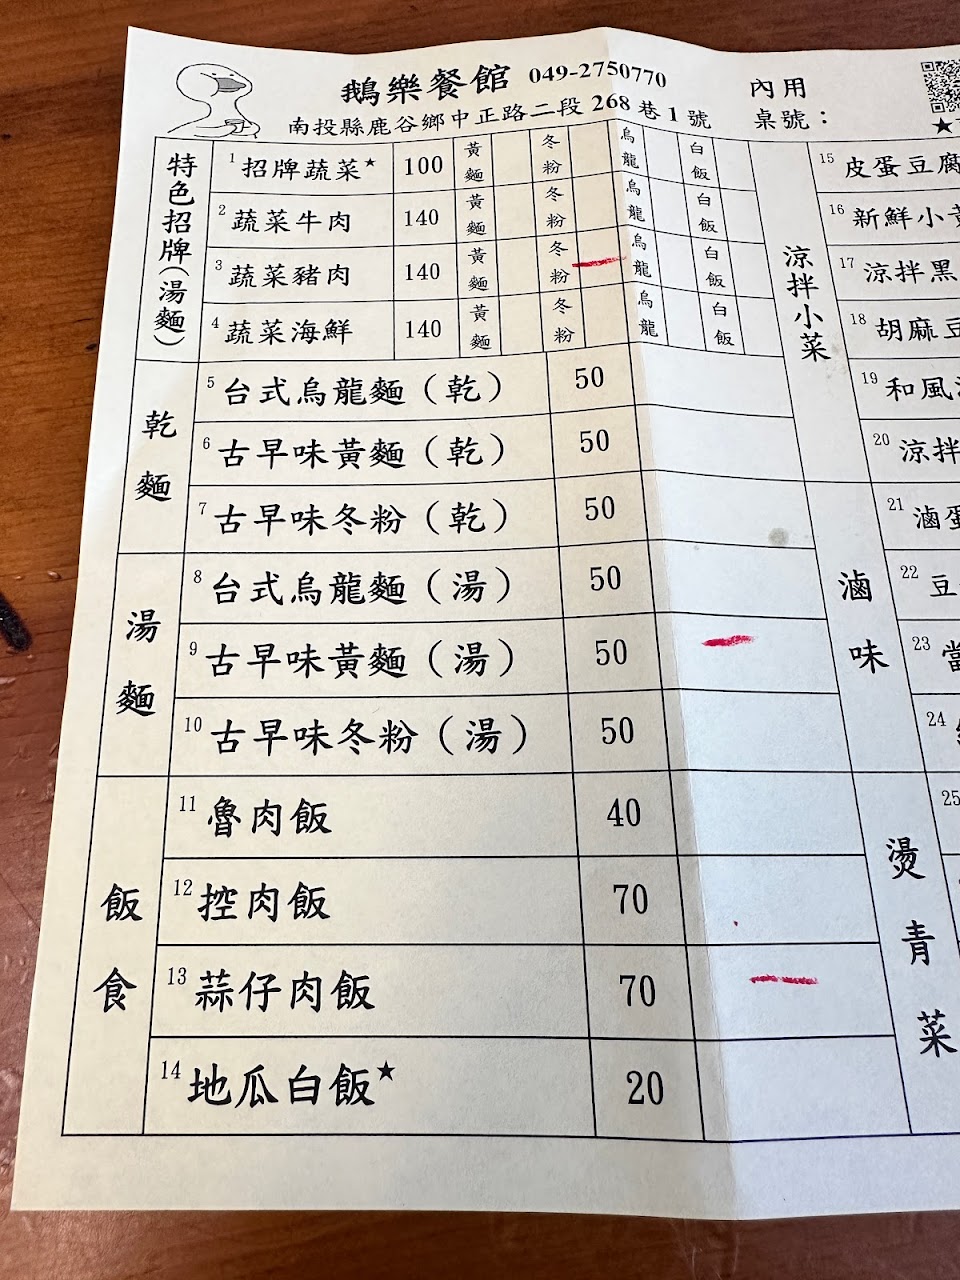 鵝樂餐館 049-2750770
南投縣鹿谷鄉中正路二段 268 巷 1 號
內用
桌號：
★
特色招牌(湯麵)
1 招牌蔬菜★ 100 黃麵 冬粉 烏龍 白飯
2 蔬菜牛肉 140 黃麵 冬粉 烏龍 白飯
3 蔬菜豬肉 140 黃麵 冬粉 烏龍 白飯
4 蔬菜海鮮 140 黃麵 冬粉 烏龍 白飯
乾麵
5 台式烏龍麵(乾) 50
6 古早味黃麵(乾) 50
7 古早味冬粉(乾) 50
湯麵
8 台式烏龍麵(湯) 50
9 古早味黃麵(湯) 50
10 古早味冬粉(湯) 50
飯食
11 魯肉飯 40
12 控肉飯 70
13 蒜仔肉飯 70
14 地瓜白飯★ 20
涼拌小菜
15 皮蛋豆腐
16 新鮮小黃
17 涼拌黑
18 胡麻豆
19 和風
20 涼拌
滷味
21 滷蛋
22 豆
23 當
24
燙青菜
25